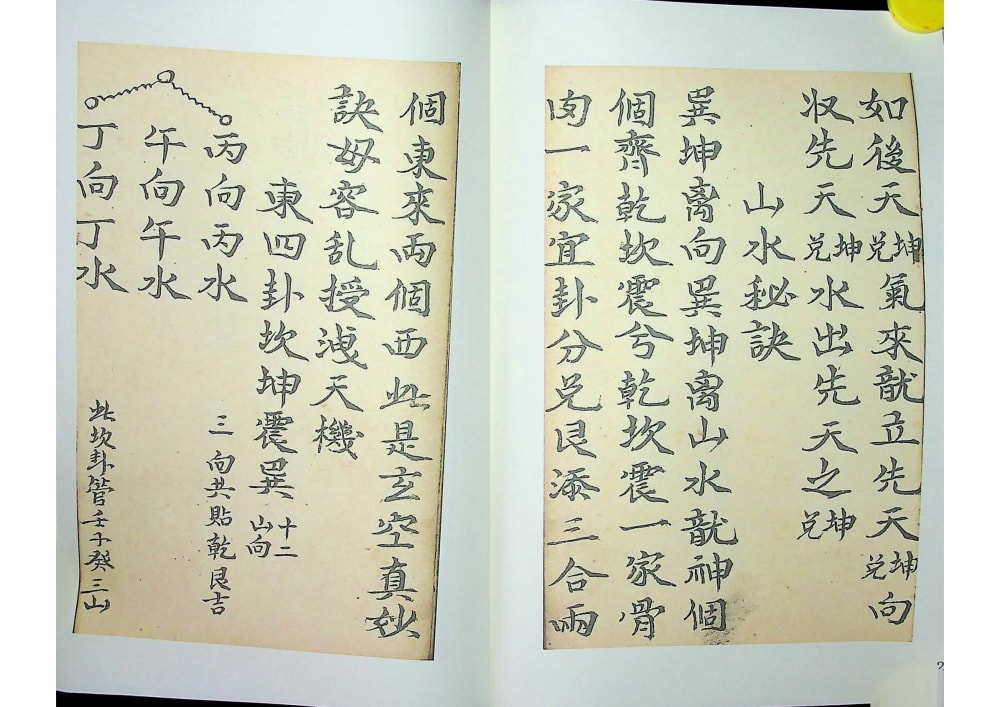 如後天坤兑氣來龍立先天坤兑向
収先天坤兑水出先天之坤兑
山水秘訣
巽坤离向巽坤离山水龍神個
個齊乾坎震兮乾坎震一家骨
肉一家宜卦分兑艮添三合兩
個東來兩個西此是玄空真妙
訣毋容乱授洩天機
東四卦坎坤震巽十二山向
丙向丙水 三向共貼乾艮吉
午向午水
丁向丁水 此坎卦管壬子癸三山